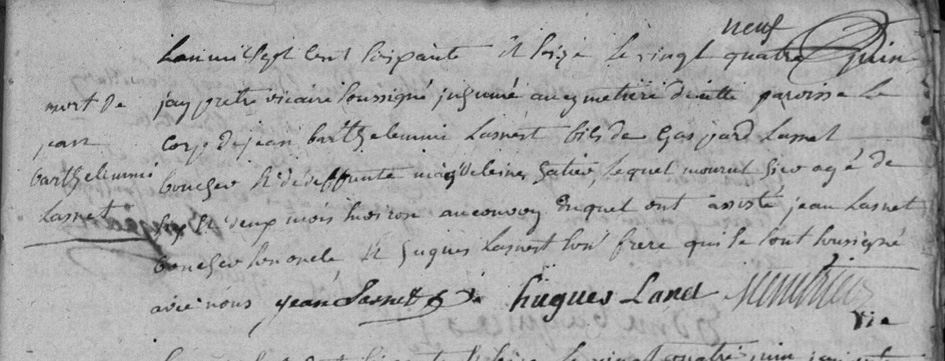 neuf
L'an mil sept cent soixante et seize le vingt quatre Juin
mort de
jay pretre vicaire soussigné inhumé au cymetiere de cette paroisse le
jean
corps de jean barthelemmi Lasnet fils de Gaspard Lasnet
barthelemmi
boucher et de deffunte magdeleine lequel mourut hier agé de
Lasnet
et deux mois environ au convoy duquel ont assisté jean Lasnet
boucher son oncle et hugues Lasnet son frere qui se sont soussigné
avec nous jean Lasnet hugues Lanet
vic